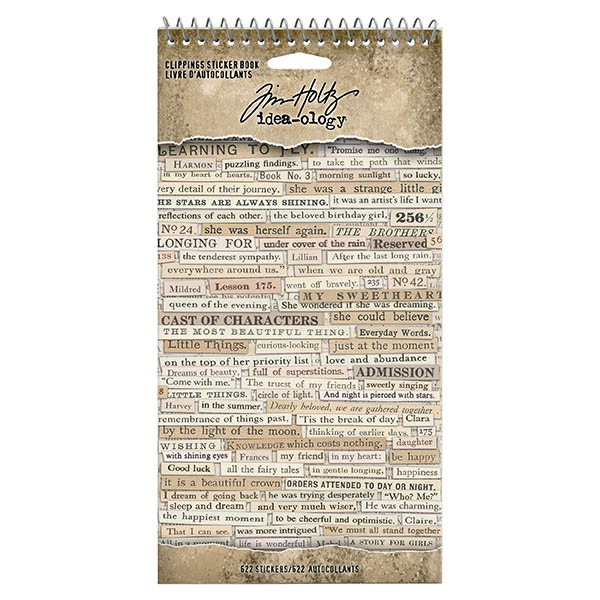 CLIPPINGS STICKER BOOK
LIVRE D'AUTOCOLLANTS
Tim Holtz
idea-ology
LEARNING TO FLY. "Promise me one thing.
HARMON puzzling findings. to take the path that winds
in my heart of hearts. Book No. 3 morning sunlight so lucky.
very detail of their journey. she was a strange little gi
HE STARS ARE ALWAYS SHINING. it was an artist's life I want
reflections of each other. the beloved birthday girl, 256½
No 24. she was herself again. THE BROTHERS
LONGING FOR under cover of the rain Reserved 56
138 the tenderest sympathy. Lillian After the last long rain.
everywhere around us." when we are old and gray
Mildred Lesson 175. went off bravely. 235 No 42.
MY SWEETHEART
queen of the evening. She wondered if she was dreaming.
CAST OF CHARACTERS she could believe
THE MOST BEAUTIFUL THING. Everyday Words.
Little Things. curious-looking just at the moment
on the top of her priority list love and abundance
Dreams of beauty. full of superstitions. ADMISSION
"Come with me." The truest of my friends sweetly singing
LITTLE THINGS. circle of light. And night is pierced with stars.
Harvey in the summer. Dearly beloved, we are gathered together
remembrance of things past. 'Tis the break of day, Clara
by the light of the moon. thinking of earlier days. 175
WISHING KNOWLEDGE which costs nothing. daughter
with shining eyes Frances my friend in my heart: be happy
Good luck all the fairy tales in gentle longing, happiness
it is a beautiful crown ORDERS ATTENDED TO DAY OR NIGHT.
I dream of going back he was trying desperately "Who? Me?"
sleep and dream and very much wiser, He was charming.
the happiest moment to be cheerful and optimistic. Claire,
That I can see. was more intrigued "We must all stand together
life is wonderful Mabel A STORY FOR GIRLS
622 STICKERS/622 AUTOCOLLANTS